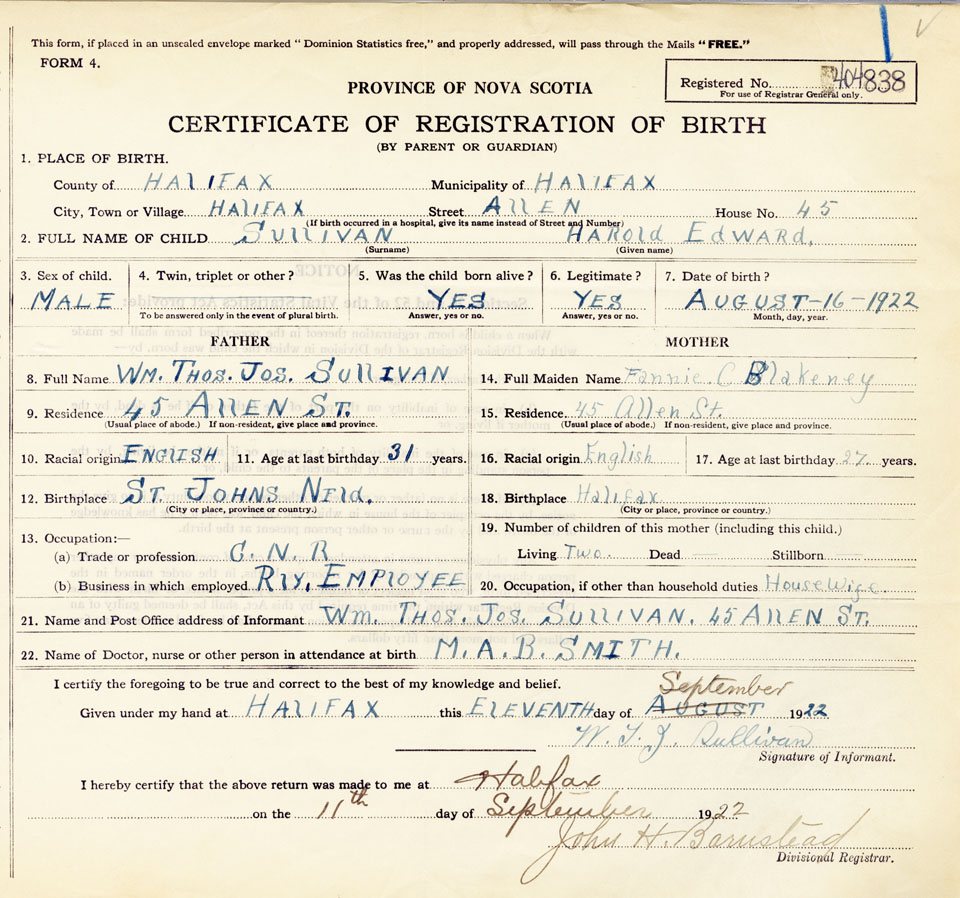 This form, if placed in an unsealed envelope marked "Dominion Statistics free," and properly addressed, will pass through the Mails "FREE."
FORM 4.
Registered No. 404838
For use of Registrar General only.
PROVINCE OF NOVA SCOTIA
CERTIFICATE OF REGISTRATION OF BIRTH
(BY PARENT OR GUARDIAN)
1. PLACE OF BIRTH.
County of HALIFAX Municipality of HALIFAX
City, Town or Village HALIFAX Street ALLEN House No. 45
(If birth occurred in a hospital, give its name instead of Street and Number)
2. FULL NAME OF CHILD SULLIVAN HAROLD EDWARD.
(Surname) (Given name)
3. Sex of child. 4. Twin, triplet or other? 5. Was the child born alive? 6. Legitimate? 7. Date of birth?
MALE YES YES AUGUST-16-1922
To be answered only in the event of plural birth. Answer, yes or no. Answer, yes or no. Month, day, year.
FATHER MOTHER
8. Full Name WM. THOS. JOS. SULLIVAN 14. Full Maiden Name Fannie. C Blakeney
9. Residence 45 ALLEN ST. 15. Residence. 45 Allen St.
(Usual place of abode.) If non-resident, give place and province. (Usual place of abode.) If non-resident, give place and province.
10. Racial origin ENGLISH 11. Age at last birthday 31 years. 16. Racial origin English 17. Age at last birthday 27 years.
12. Birthplace ST. JOHNS NFLD. 18. Birthplace Halifax
(City or place, province or country.) (City or place, province or country.)
13. Occupation:— 19. Number of children of this mother (including this child.)
(a) Trade or profession C. N. R Living Two. Dead — Stillborn —
(b) Business in which employed RLY, EMPLOYEE 20. Occupation, if other than household duties HouseWife.
21. Name and Post Office address of Informant WM. THOS. JOS. SULLIVAN. 45 ALLEN ST.
22. Name of Doctor, nurse or other person in attendance at birth M. A. B. SMITH.
I certify the foregoing to be true and correct to the best of my knowledge and belief.
September
Given under my hand at HALIFAX this ELEVENTH day of AUGUST 1922
W. T. J. Sullivan
Signature of Informant.
I hereby certify that the above return was made to me at Halifax
on the 11th day of September 1922
John H. Barnstead
Divisional Registrar.